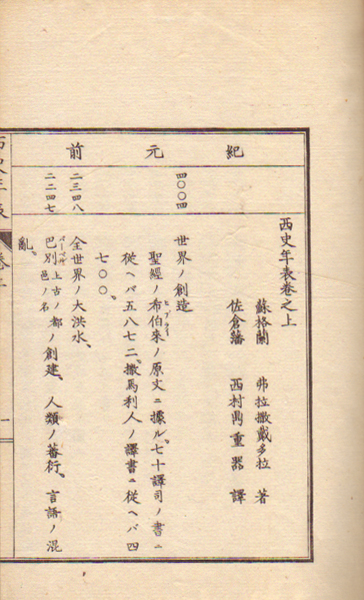 紀元前
西史年表卷之上
蘇格蘭 弗拉撒戴多拉 著
佐倉藩 西村鼎重器 譯
四〇〇四
世界ノ創造
聖經ノ希伯來ヘブリウノ原文ニ據ル、七十譯司ノ書ニ
從ヘバ五八七二、撒馬利人ノ譯書ニ從ヘバ四
七〇〇、
二三四八
全世界ノ大洪水、
二二四七
巴別バーベル上古ノ都邑ノ名ノ創建、人類ノ蕃衍、言語ノ混
亂、
西史年表
卷上
一